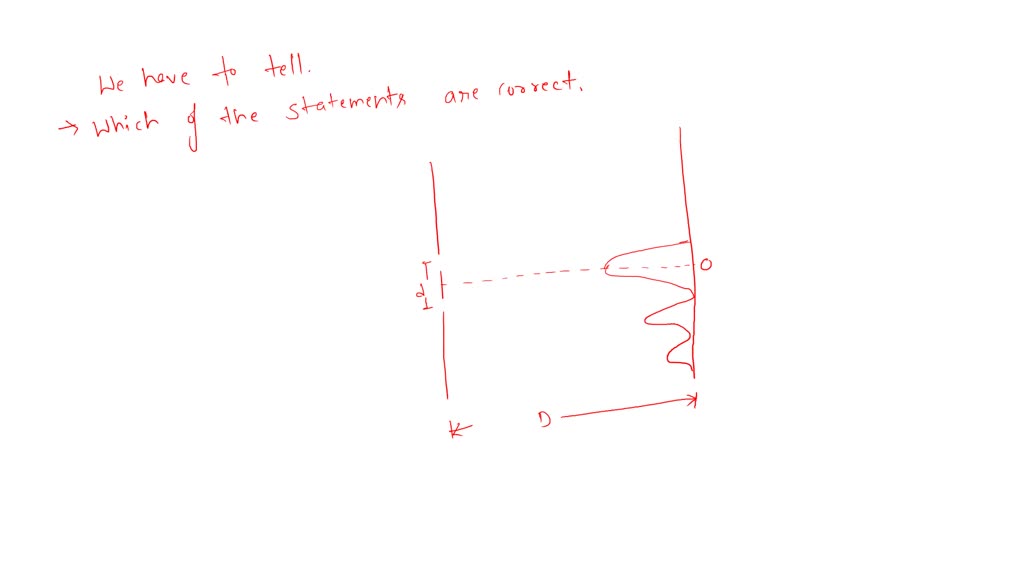 We have to tell.
→ Which of the statements are correct.
d
O
D